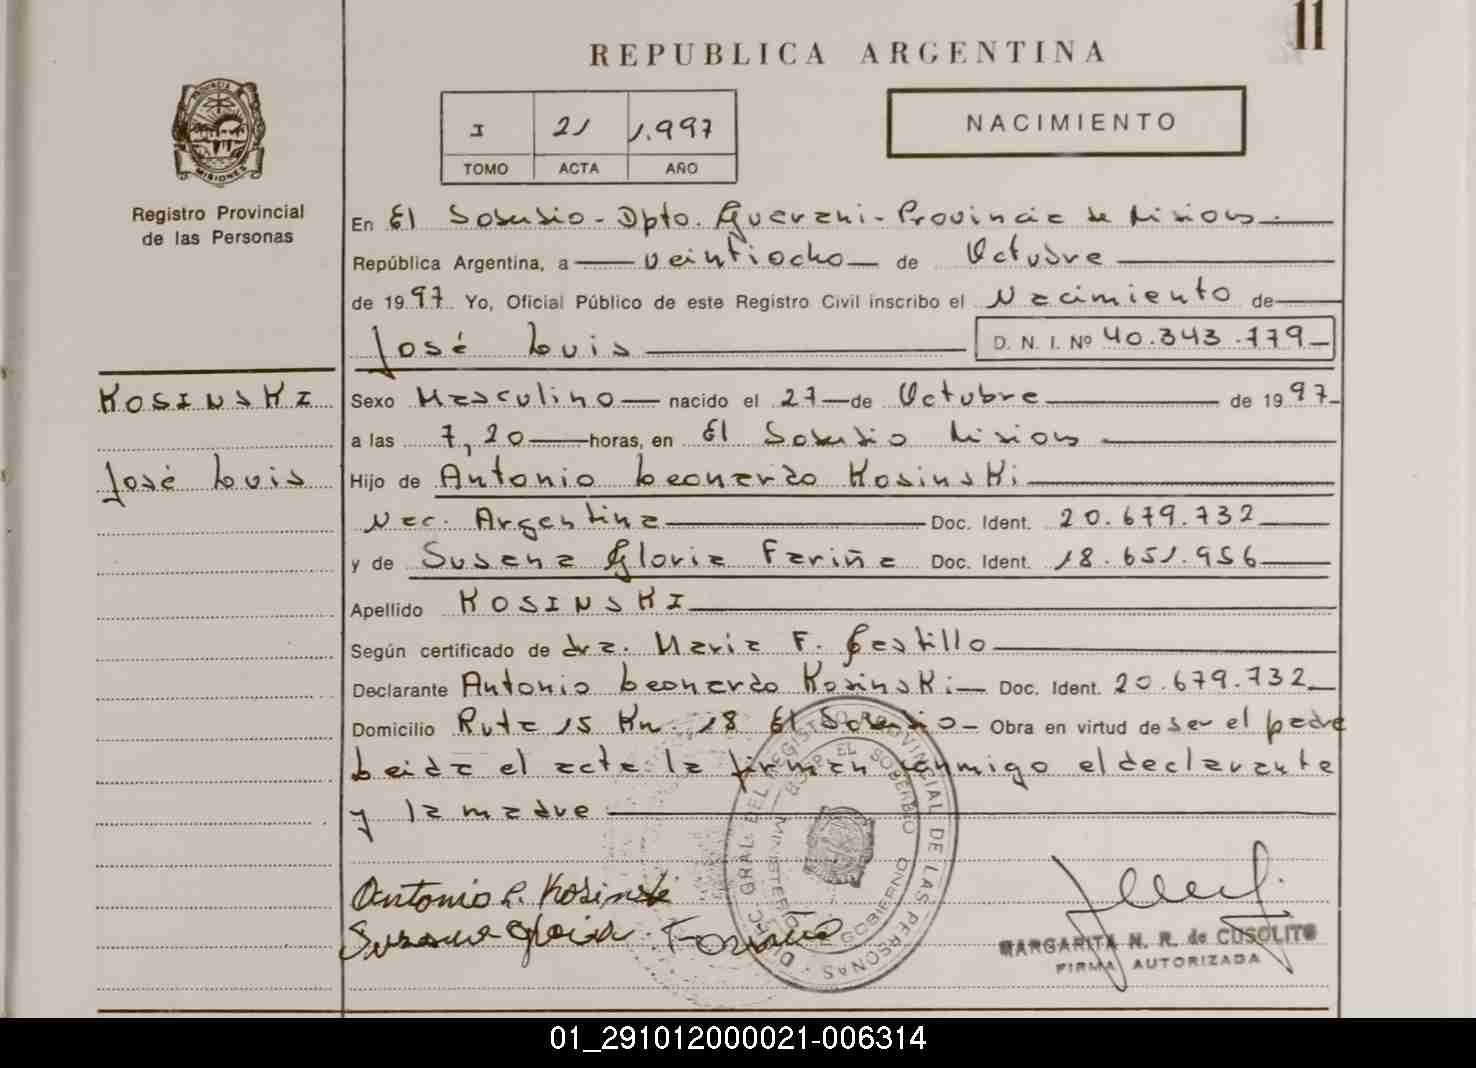 11
REPUBLICA ARGENTINA
PROVINCIA DE
MISIONES
Registro Provincial
de las Personas
I 21 1.997
TOMO ACTA AÑO
NACIMIENTO
En El Soberbio - Dpto. Guarani - Provincia de Misiones
República Argentina, a veintiocho de Octubre
de 1997 Yo, Oficial Público de este Registro Civil inscribo el Nacimiento de
José Luis D. N. I. Nº 40.343.779
KOSINSKI
José Luis
Sexo Masculino nacido el 27 de Octubre de 1997
a las 7,20 horas, en El Soberbio Misiones
Hijo de Antonio Leonardo Kosinski
Nac. Argentina Doc. Ident. 20.679.732
y de Susana Gloria Fariña Doc. Ident. 18.651.956
Apellido KOSINSKI
Según certificado de dra. Maria F. Castillo
Declarante Antonio Leonardo Kosinski Doc. Ident. 20.679.732
Domicilio Ruta 15 Km. 18 El Soberbio Obra en virtud de ser el padre
Leida el acta la firman conmigo el declarante
y la madre
DIREC. GRAL. DEL REGISTRO PROVINCIAL DE LAS PERSONAS
EL SOBERBIO
MINISTERIO GOBIERNO
Antonio L. Kosinski
Susana Gloria Fariña
MARGARITA N. R. de CUSOLITO
FIRMA AUTORIZADA
01_291012000021-006314